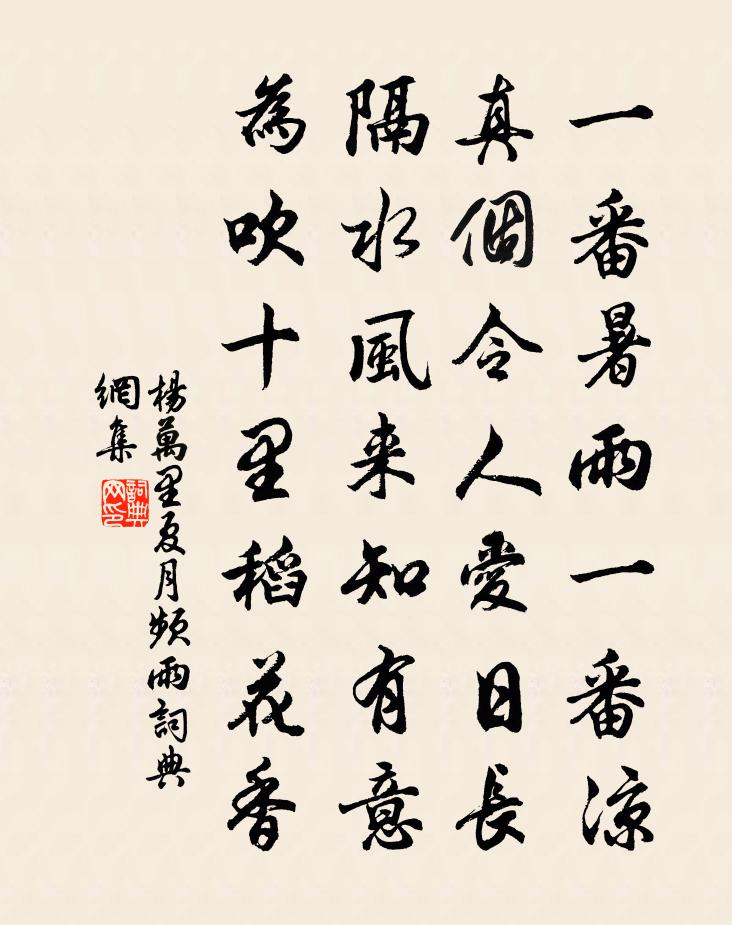 一番暑雨一番涼
真個令人愛日長
隔水風来知有意
為吹十里稻花香
楊萬里夏月頻雨詞典
網集
詞典
网印